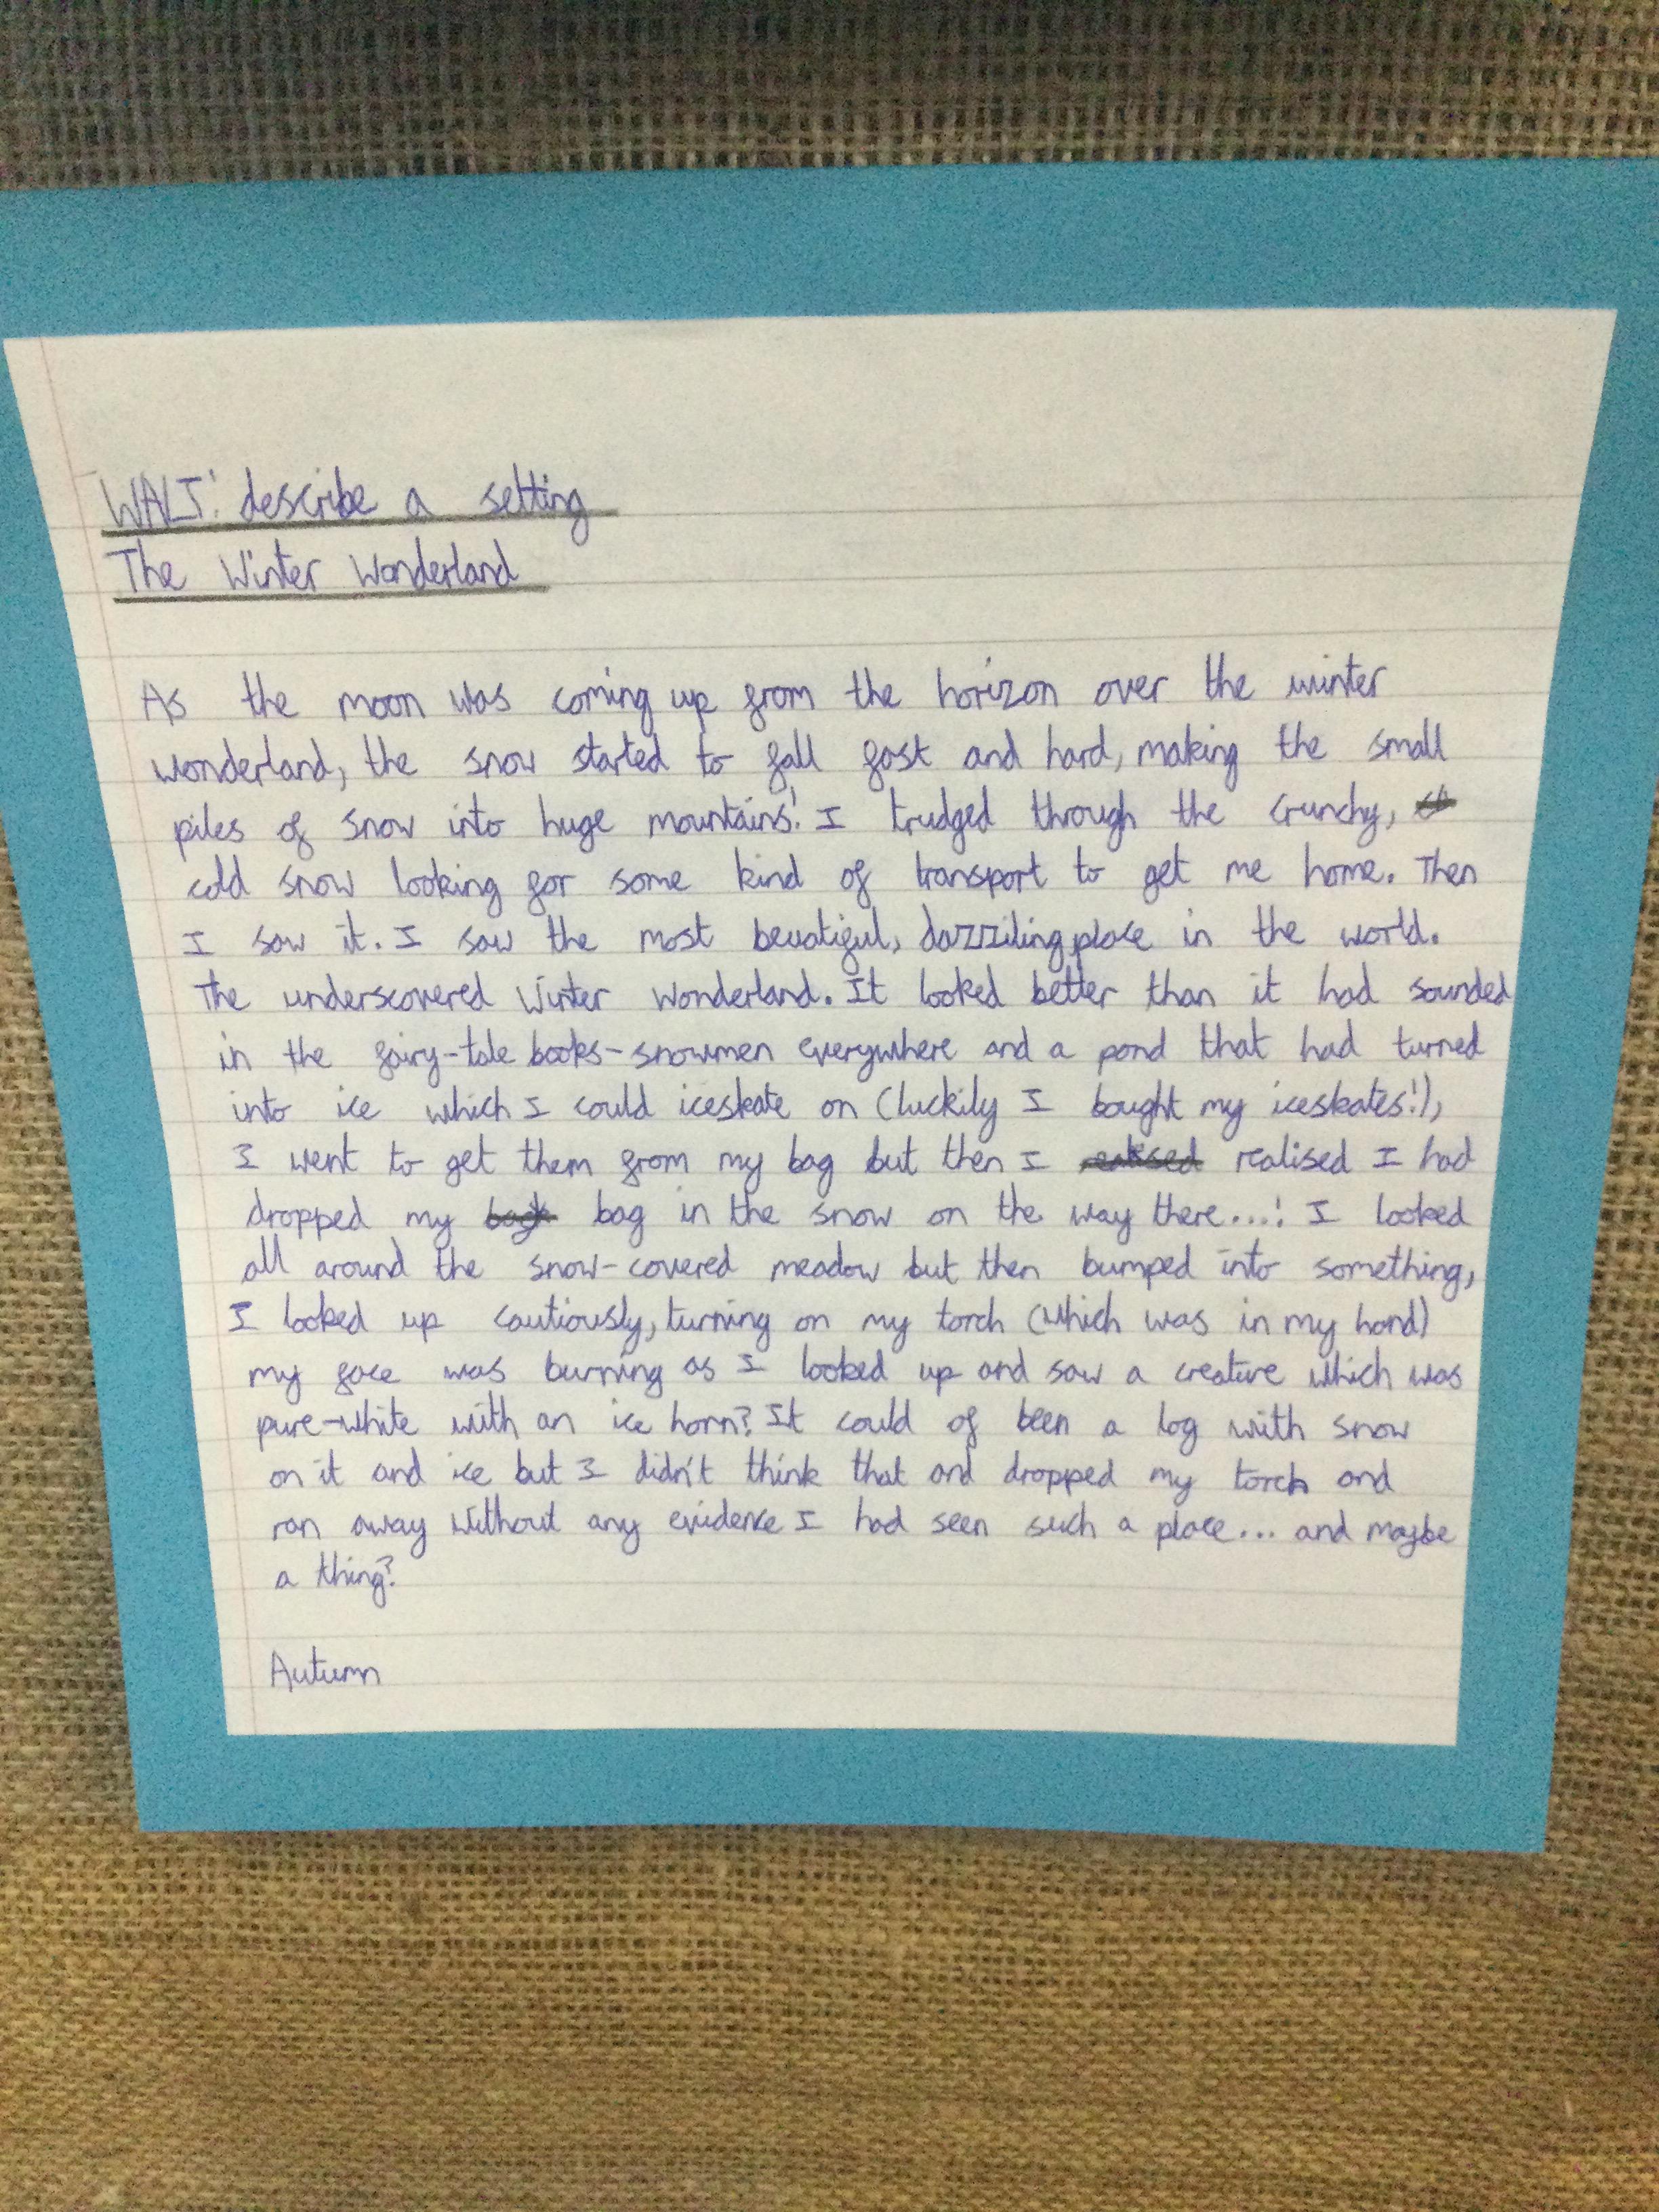 WALT: describe a setting
The Winter Wonderland
As the moon was coming up from the horizon over the winter
wonderland, the snow started to fall fast and hard, making the small
piles of snow into huge mountains! I trudged through the crunchy,
cold snow looking for some kind of transport to get me home. Then
I saw it. I saw the most beuatiful, dazziling place in the world.
The underscovered Winter Wonderland. It looked better than it had sounded
in the fairy-tale books-snowmen everywhere and a pond that had turned
into ice which I could iceskate on (luckily I bought my iceskates!),
I went to get them from my bag but then I realised I had
dropped my bag in the snow on the way there...! I looked
all around the snow-covered meadow but then bumped into something,
I looked up cautiously, turning on my torch (which was in my hand)
my face was burning as I looked up and saw a creative which was
pure-white with an ice horn? It could of been a log with snow
on it and ice but I didn't think that and dropped my torch and
ran away without any evidence I had seen such a place... and maybe
a thing?
Autumn